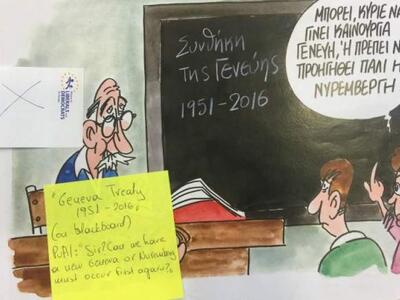 ΜΠΟΡΕΙ, ΚΥΡΙΕ ΝΑ
ΓΙΝΕΙ ΚΑΙΝΟΥΡΓΙΑ
ΓΕΝΕΥΗ, Ή ΠΡΕΠΕΙ Ν
ΠΡΟΗΓΗΘΕΙ ΠΑΛΙ Η
ΝΥΡΕΜΒΕΡΓΗ
Συνθήκη
της Γενεύης
1951-2016
LIBERALS AND
DEMOCRATS
"Geneva Treaty
1951-2016"
(on blackboard)
Pupil: "Sir? Can we have
a new Geneva or Nuremberg
must occur first again?"